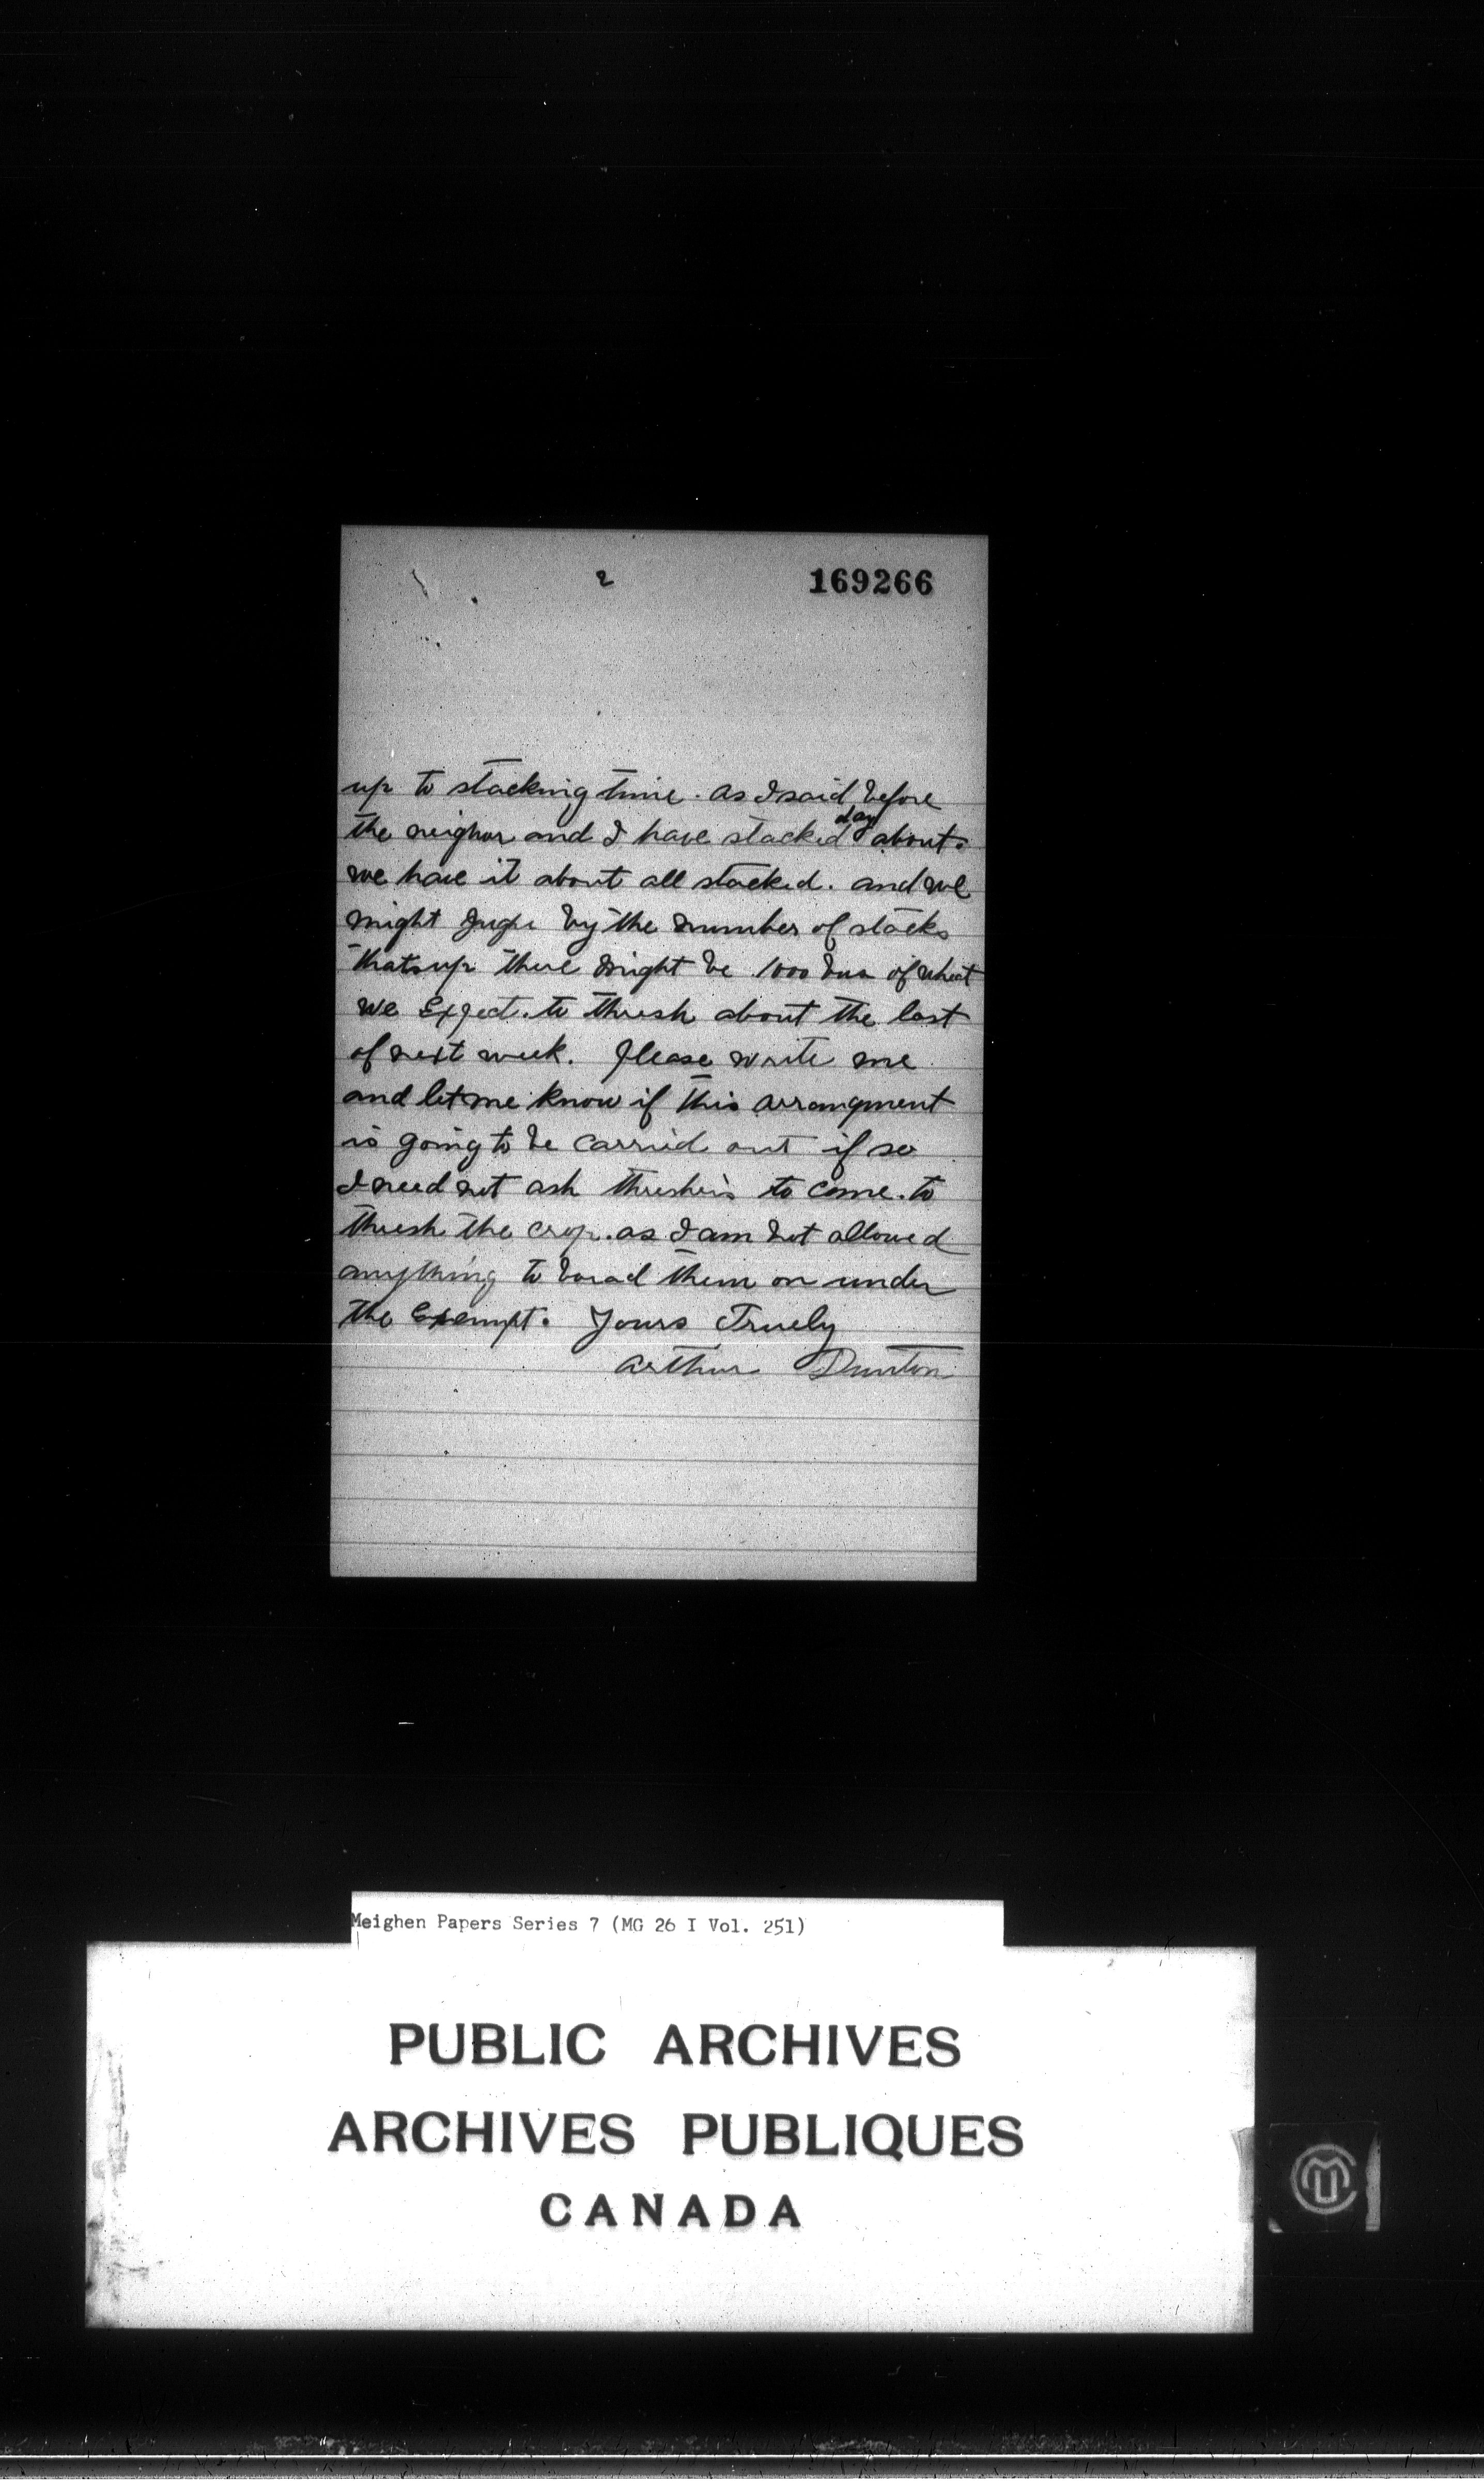 2
169266
up to stacking time. as I said before
the neighor and I have stacked day about.
we have it about all stacked. and we
might juge by the number of stacks
thats up there might be 1000 bus of wheat
we Expect. to thresh about the last
of next week. Please write me
and let me know if this arrangment
is going to be carried out if so
I need not ask threshers to come. to
thresh the crop. as I am not allowed
anything to borad them on under
the Exempt. Yours Truely
Arthur Dunton
Meighen Papers Series 7 (MG 26 I Vol. 251)
PUBLIC ARCHIVES
ARCHIVES PUBLIQUES
CANADA